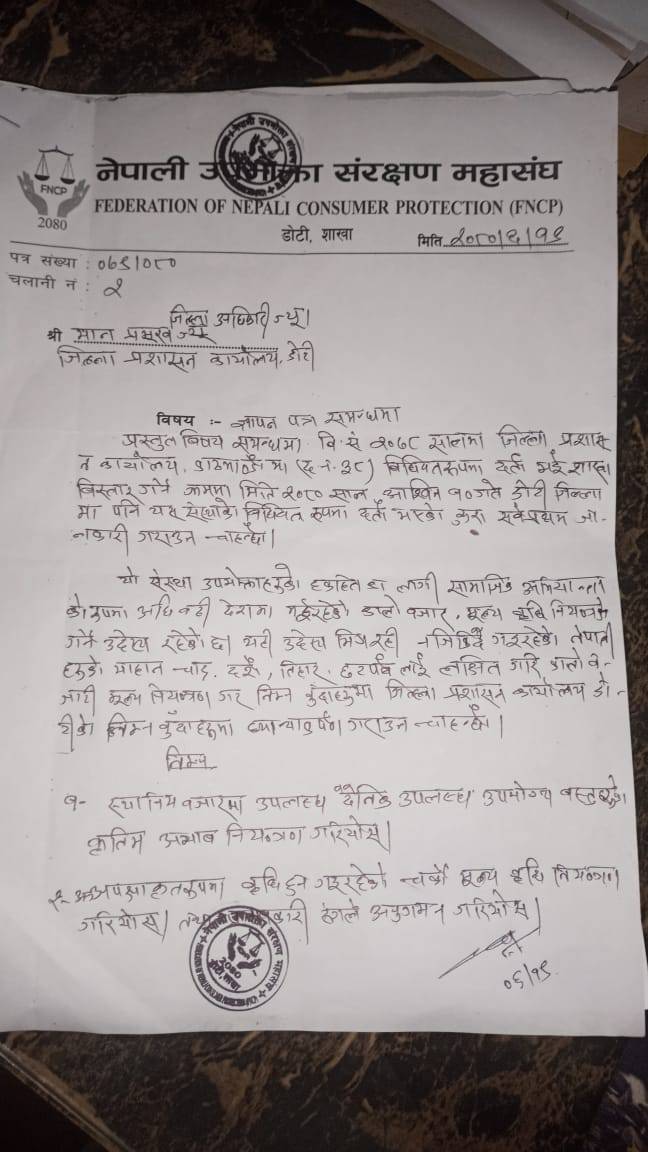 FNCP
2080
नेपाली उपभोक्ता संरक्षण महासंघ
FEDERATION OF NEPALI CONSUMER PROTECTION (FNCP)
डोटी, शाखा
मिति २०८०/६/१९
पत्र संख्या : ०७९/०८०
चलानी नं : २
जिल्ला अधिकारी ज्यू।
श्री मान प्रमुख ज्यू
जिल्ला प्रशासन कार्यालय, डोटी
विषय :- ज्ञापन पत्र सम्बन्धमा
प्रस्तुत बिषय सम्बन्धमा वि सं २०७८ सालमा जिल्ला प्रशास
न कार्यालय, काठमाडौं मा (द. नं. ३८) बिधिवत रुपमा दर्ता भई शाखा
बिस्तार गर्ने क्रममा मिति २०८० साल आश्विन १० गते डोटी जिल्ला
मा पनि यस संस्थाको विधिवत रुपमा दर्ता भएको कुरा सर्वप्रथम जा-
नकारी गराउन चाहन्छौ।
यो संस्था उपभोक्ताहरुको हकहित का लागी सामाजिक अभियान्ता
को रुपमा अघि बढी देशमा भईरहेको कालो बजार, मूल्य बृद्धि नियन्त्रण
गर्ने उदेश्य रहेको छ। यही उदेश्य नजिकिदै गइरहेको नेपाली
हरुको माहान चाड. दशैं, तिहार, छटपर्व लाई लक्षित गरि कालो ब-
जारी मूल्य नियन्त्रण गर्न निम्न बुँदाहरुमा जिल्ला प्रशासन कार्यालय डो-
टीको निम्न बुँदाहरुमा ध्यानाकर्षण गराउन चाहन्छौ।
निम्न
१- स्थानिय बजारमा उपलब्ध दैनिक उपलब्ध उपभोग्य वस्तुहरुको
कृतिम अभाव नियन्त्रण गरियोस्।
२- बृद्धि हुन गइरहेको चर्को मूल्य बृद्धि नियन्त्रण
गरियोस्। कारी ढंगले अनुगमन गरियोस्।
०६/१९
2080
डोटी, शाखा